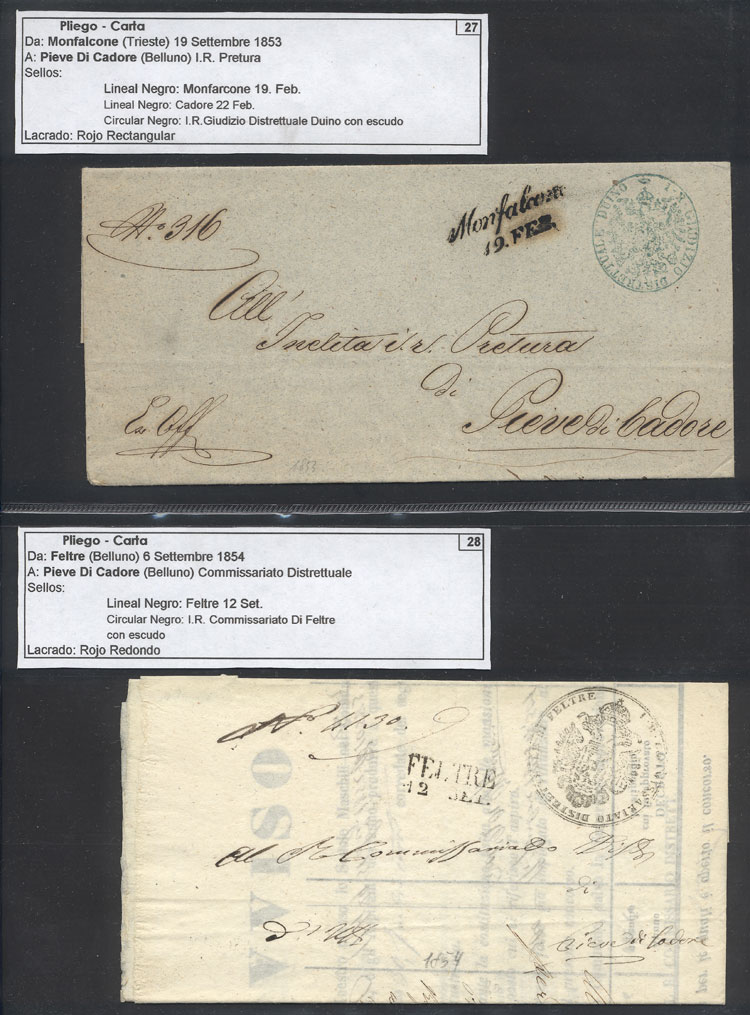 Pliego - Carta
27
Da: Monfalcone (Trieste) 19 Settembre 1853
A: Pieve Di Cadore (Belluno) I.R. Pretura
Sellos:
Lineal Negro: Monfarcone 19. Feb.
Lineal Negro: Cadore 22 Feb.
Circular Negro: I.R.Giudizio Distrettuale Duino con escudo
Lacrado: Rojo Rectangular
No. 316
Monfalcone
19. FEB.
I. R. GIUDIZIO DISTRETTUALE DUINO
All'
Inclita i. r. Pretura
di
Pieve di Cadore
Ex Off
1853
Pliego - Carta
28
Da: Feltre (Belluno) 6 Settembre 1854
A: Pieve Di Cadore (Belluno) Commissariato Distrettuale
Sellos:
Lineal Negro: Feltre 12 Set.
Circular Negro: I.R. Commissariato Di Feltre
con escudo
Lacrado: Rojo Redondo
No. 4130
FELTRE
12 SET.
DISTRETTUALE DI FELTRE
Al R. Commissariato
di
Pieve di Cadore
1854
AVVISO
per le quali è aperto il concorso.